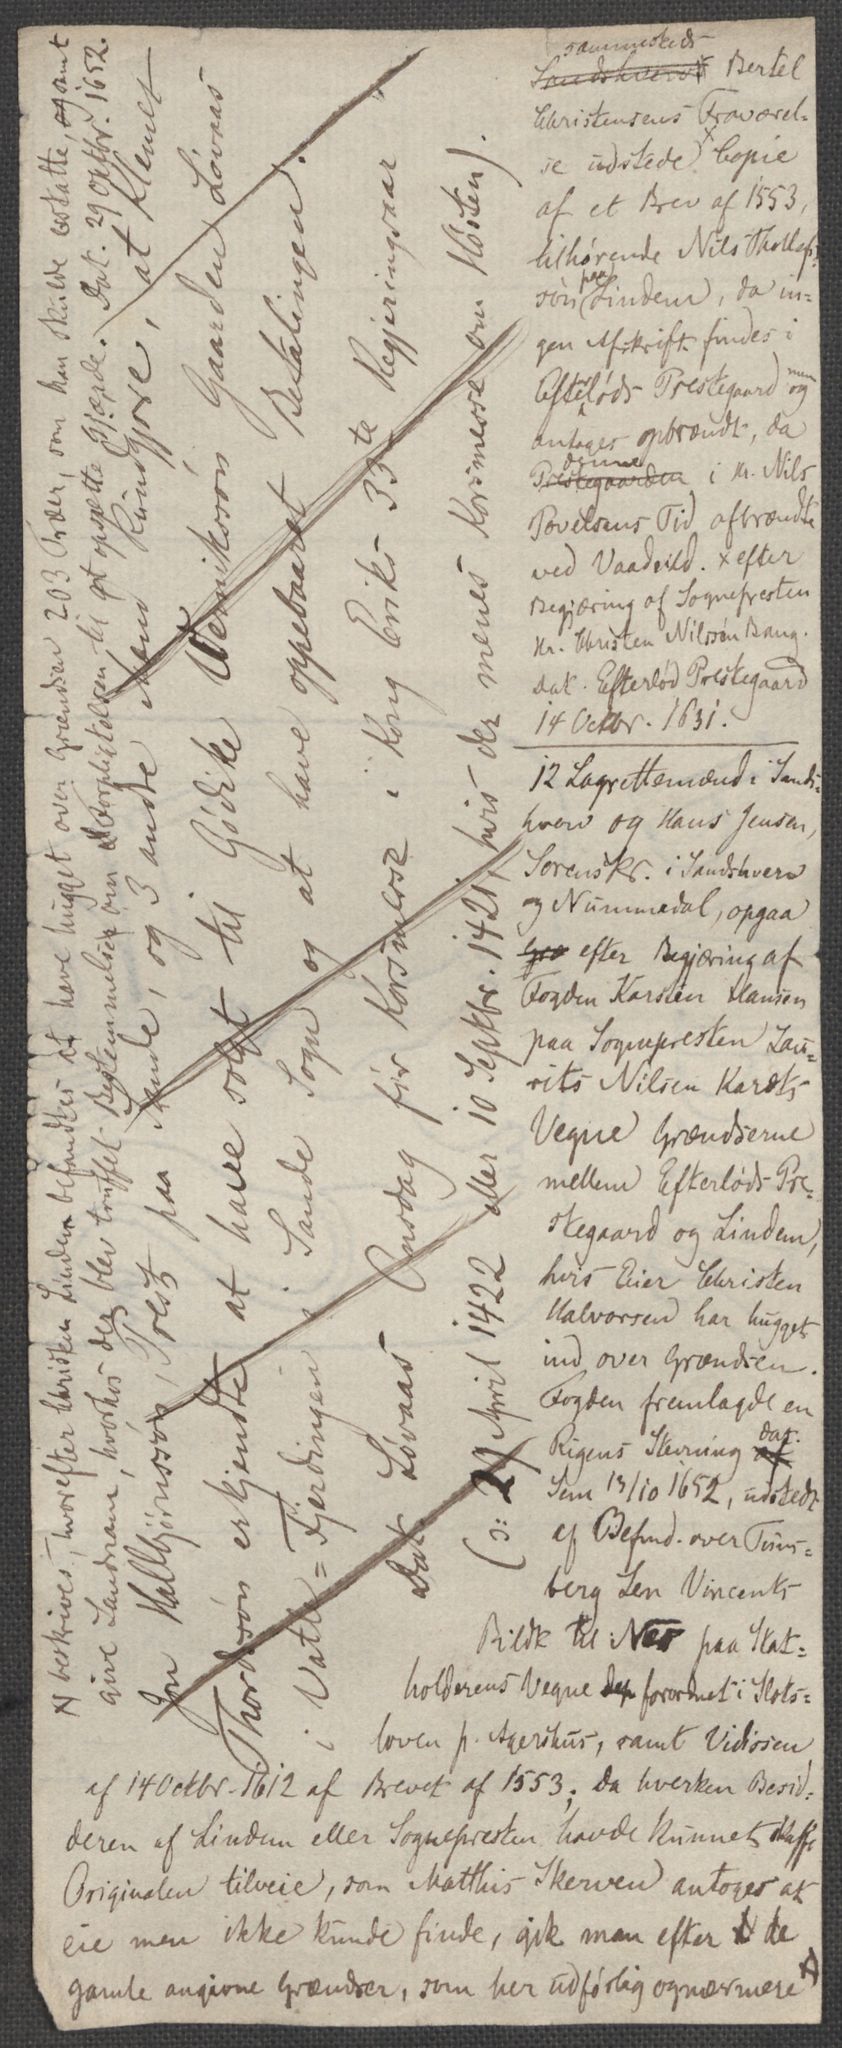 sammesteds
Sandshverv Bertel
Christensens Fraværel-
se udstede × Copie
af et Brev af 1553,
tilhørende Nils Thollefs-
søn paa Lindem, da in-
gen Afskrift findes i
Efteløds Prestegaard og
antages opbrændt, da
denne
Prestegaarden i Hr. Nils
Povelsens Tid afbrændte
ved Vaadeild. × efter
Begjæring af Sognepresten
Hr. Christen Nilssøn Bang.
Dat. Efterlød Prestegaard
14 Octbr. 1631.
12 Lagrettemænd i Sands-
hverv og Hans Jensen,
Sorenskr. i Sandshverv
og Nummedal, opgaa
efter Begjæring af
Fogden Karsten Hansen
paa Sognepresten Lau-
rits Nilsen Karets
Vegne Grændserne
mellem Efterløds Pre-
stegaard og Lindem,
hvis Eier Christen
Halvorsen har hugget
ind over Grændsen.
Fogden fremlagde en
Rigens Stevning dat.
Sem 13/10 1652, udstedt
af Befmd. over Tuns-
berg Len Vincents
Bildt til Nes paa Stat-
holderens Vegne forordnet i Slots-
loven p. Agershus, samt Vidissen
af 14 Octbr. 1612 af Brevet af 1553; da hverken Besid-
deren af Lindem eller Sognepresten havde kunnet skaffe
Originalen tilveie, som Matthis Skerven antoges at
eie men ikke kunde finde, gik man efter de
gamle angivne Grændser, som her udførlig og nærmere #
# beskrives, hvorefter Christen Lindem befandtes at have hugget over Grændsen 203 Træer, som han skulde erstatte, og samt
give Landnam, hvorhos der blev truffet Bestemmelser om Forpligtelsen til at opsætte Gjærde. Dat. 29 Octbr. 1652.
Jon Hallbjørnssøn, Prest paa Sande, og 3 andre Mænd kundgjøre, at Klemet
Thordssøn erkjendte at have solgt til Gødike Wernikssøn Gaarden Løvaas
i Vatle-Fjerdingen i Sande Sogn og at have oppebaaret Betalingen.
Dat. Løvaas Onsdag før Korsmesse i Kong Eriks 33te Regjeringsaar
(ɔ: 29 April 1422 eller 10 Septbr. 1421, hvis der menes Korsmesse om Høsten).